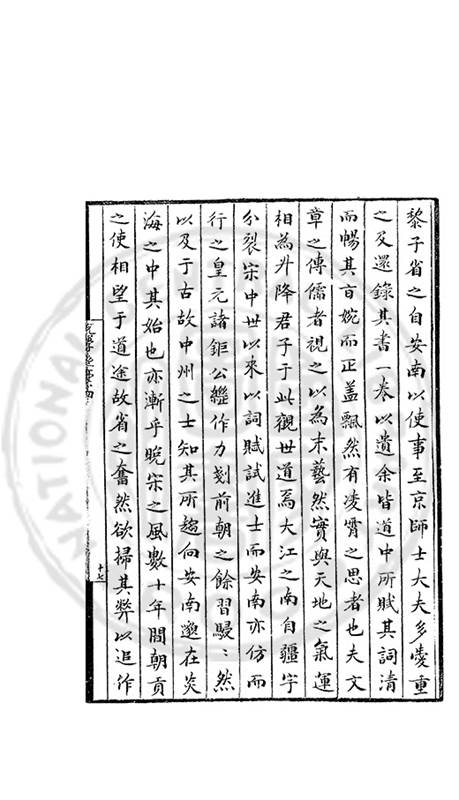 黎子省之自安南以使事至京師士大夫多愛重
之及還錄其書一卷以遺余皆道中所賦其詞清
而暢其旨婉而正盖飄然有凌霄之思者也夫文
章之傳儒者視之以為末藝然實與天地之氣運
相為升降君子于此觀世道焉大江之南自疆宇
分裂宋中世以來以詞賦試進士而安南亦仿而
行之皇元諸鉅公繼作力剗前朝之餘習駸〻然
以及于古故中州之士知其所趨向安南邈在炎
海之中其始也亦漸乎晚宋之風數十年間朝貢
之使相望于道途故省之奮然欲掃其弊以追作
十七
NATIONAL